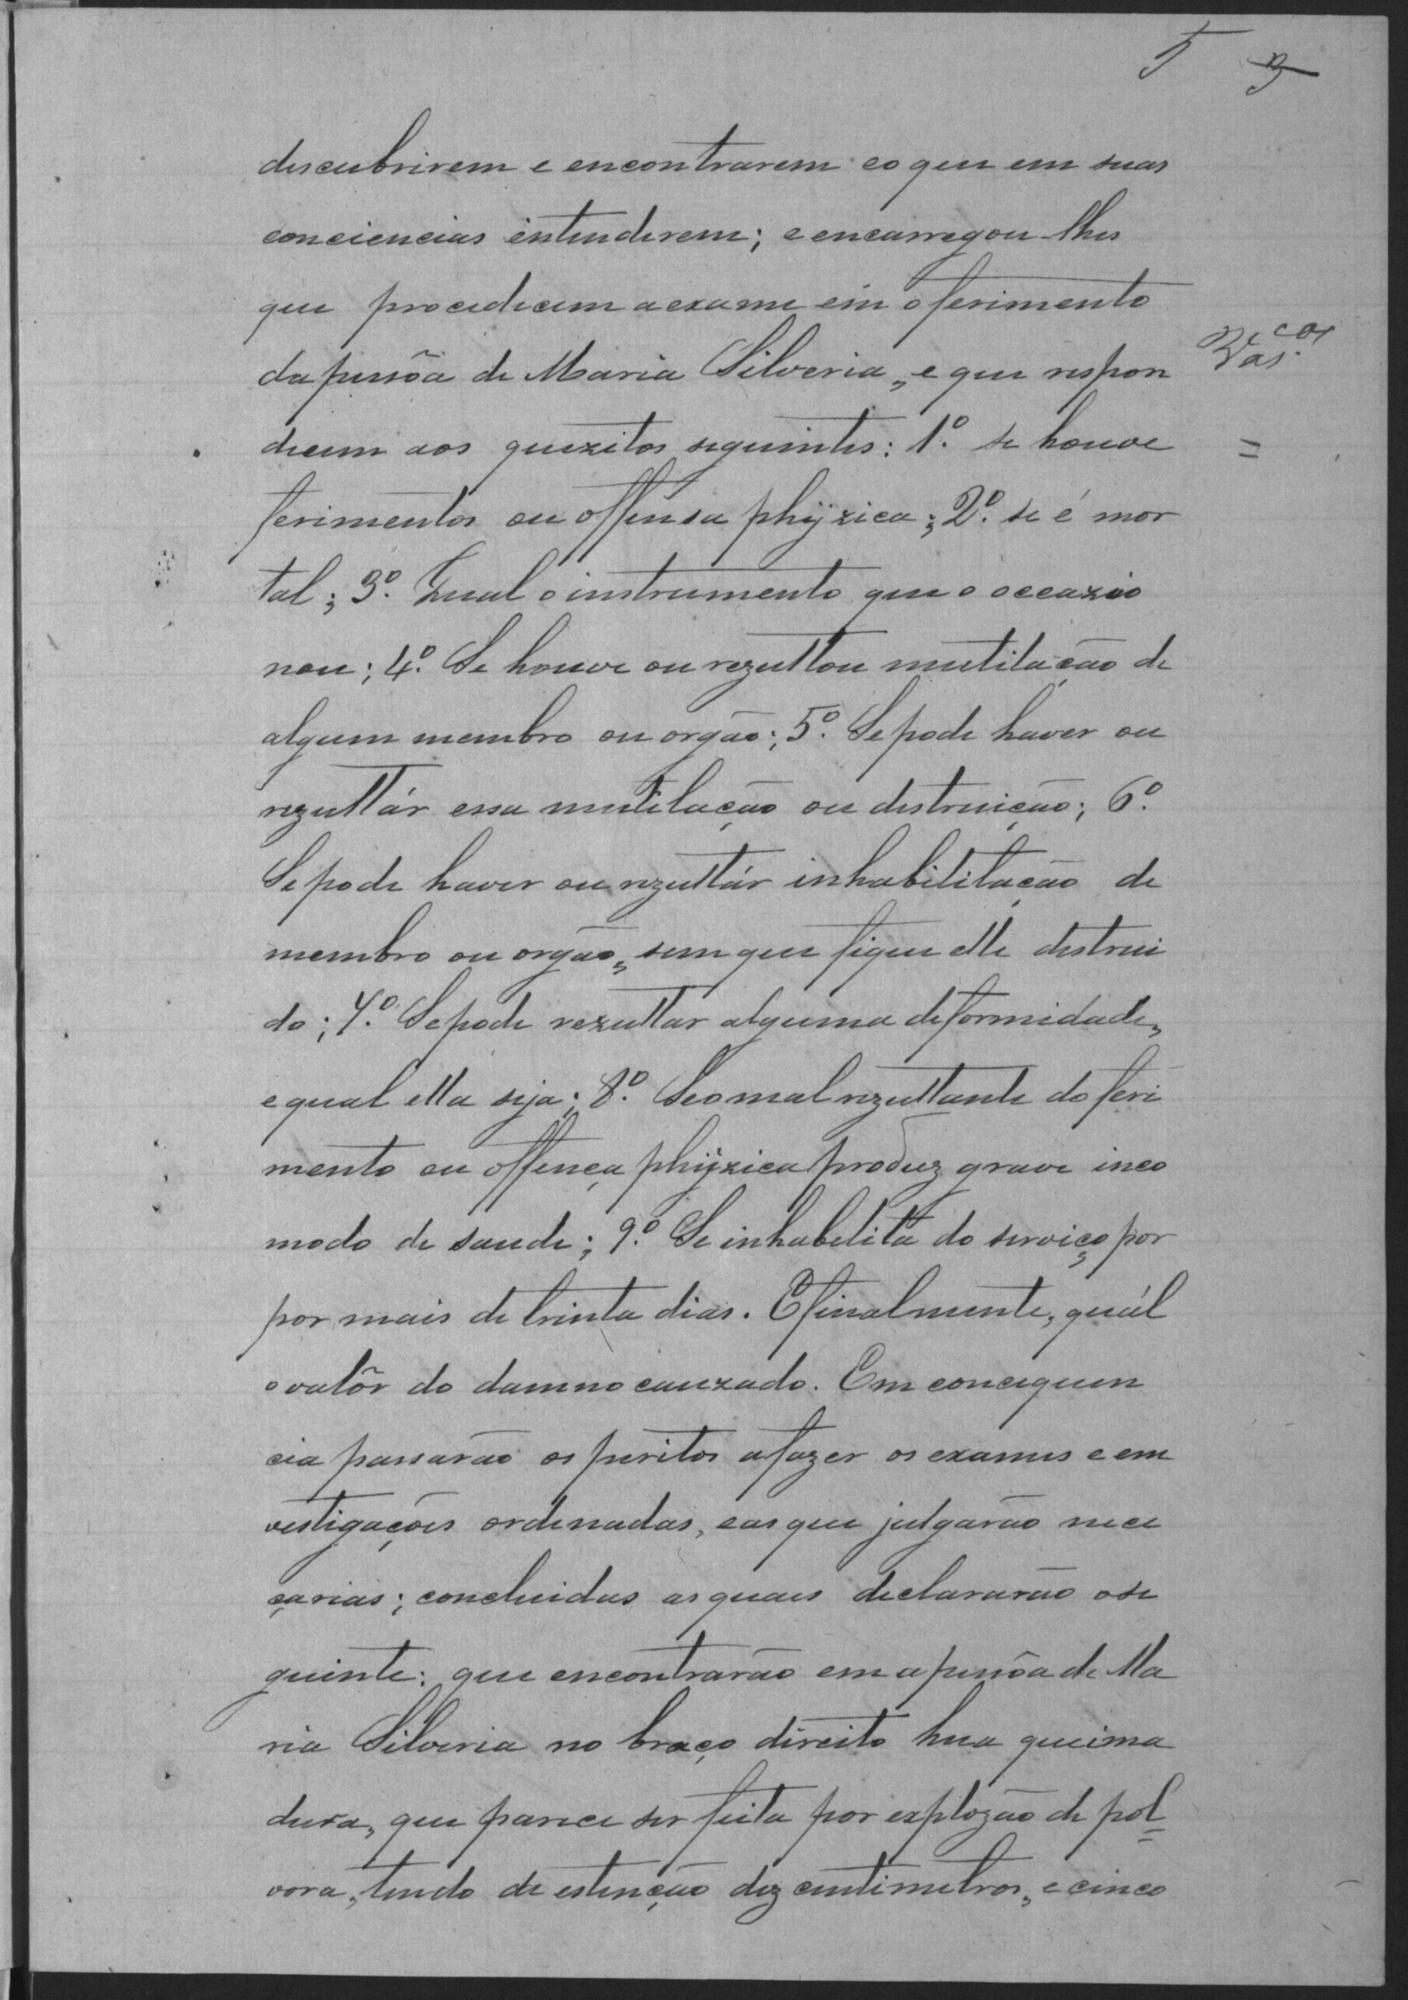 5 3
descubrirem e encontrarem eo que em suas
conciencias intenderem; e encarregou-lhes
que procedecem a exame em o ferimento
da pessôa de Maria Silveria, e que respon
decem aos quezitos seguintes: 1º. se houve
ferimentos ou offensa phÿzica; 2º. se é mor
tal; 3º. Qual o instrumento que o occazio
nou; 4º. Se houve ou rezultou mutilação de
algum membro ou orgão; 5º. Se pode haver ou
rezultár essa mutilação ou distruição; 6º.
Se pode haver ou rezultár inhabilitação de
membro ou orgão, sem que fique elle distrui
do; 7º. Se pode rezultar alguma deformidade,
e qual ella seja; 8º. Se o mal rezultante do feri
mento ou offença phÿzica produz grave inco
modo de saude; 9º. Se inhabelita do serviço por
por mais de trinta dias. E finalmente, quál
o valôr do damno cauzado. Em conciquen
cia passarão os peritos a fazer os exames e em
vestigações ordenadas, e as que julgarão nece
çarias; concluidas as quaes declararão o se
guinte: que encontrarão em a pessôa de Ma
ria Silveria no braço direito hua queima
dura, que parece ser feita por explozão de pol=
vora, tendo de estenção dez centimetros, e cinco